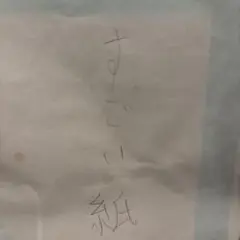 すごい紙